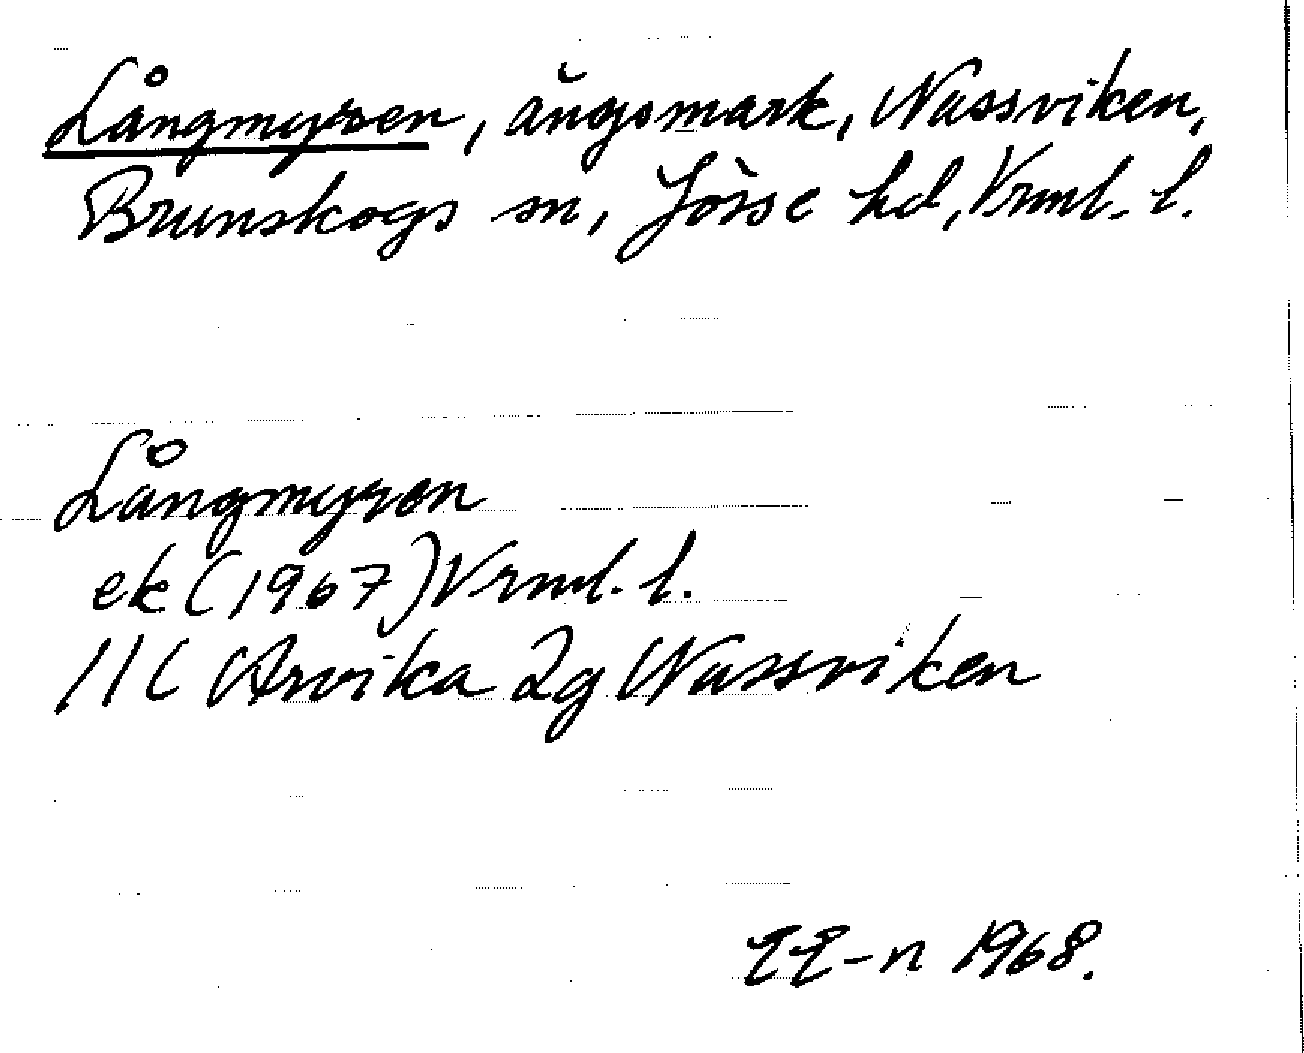 Långmyren, ängsmark, Wassviken,
Brunskogs sn, Jösse hd, Vrml. l.
Långmyren
ek (1967) Vrml. l.
11C Arvika 2g Wassviken
1968.